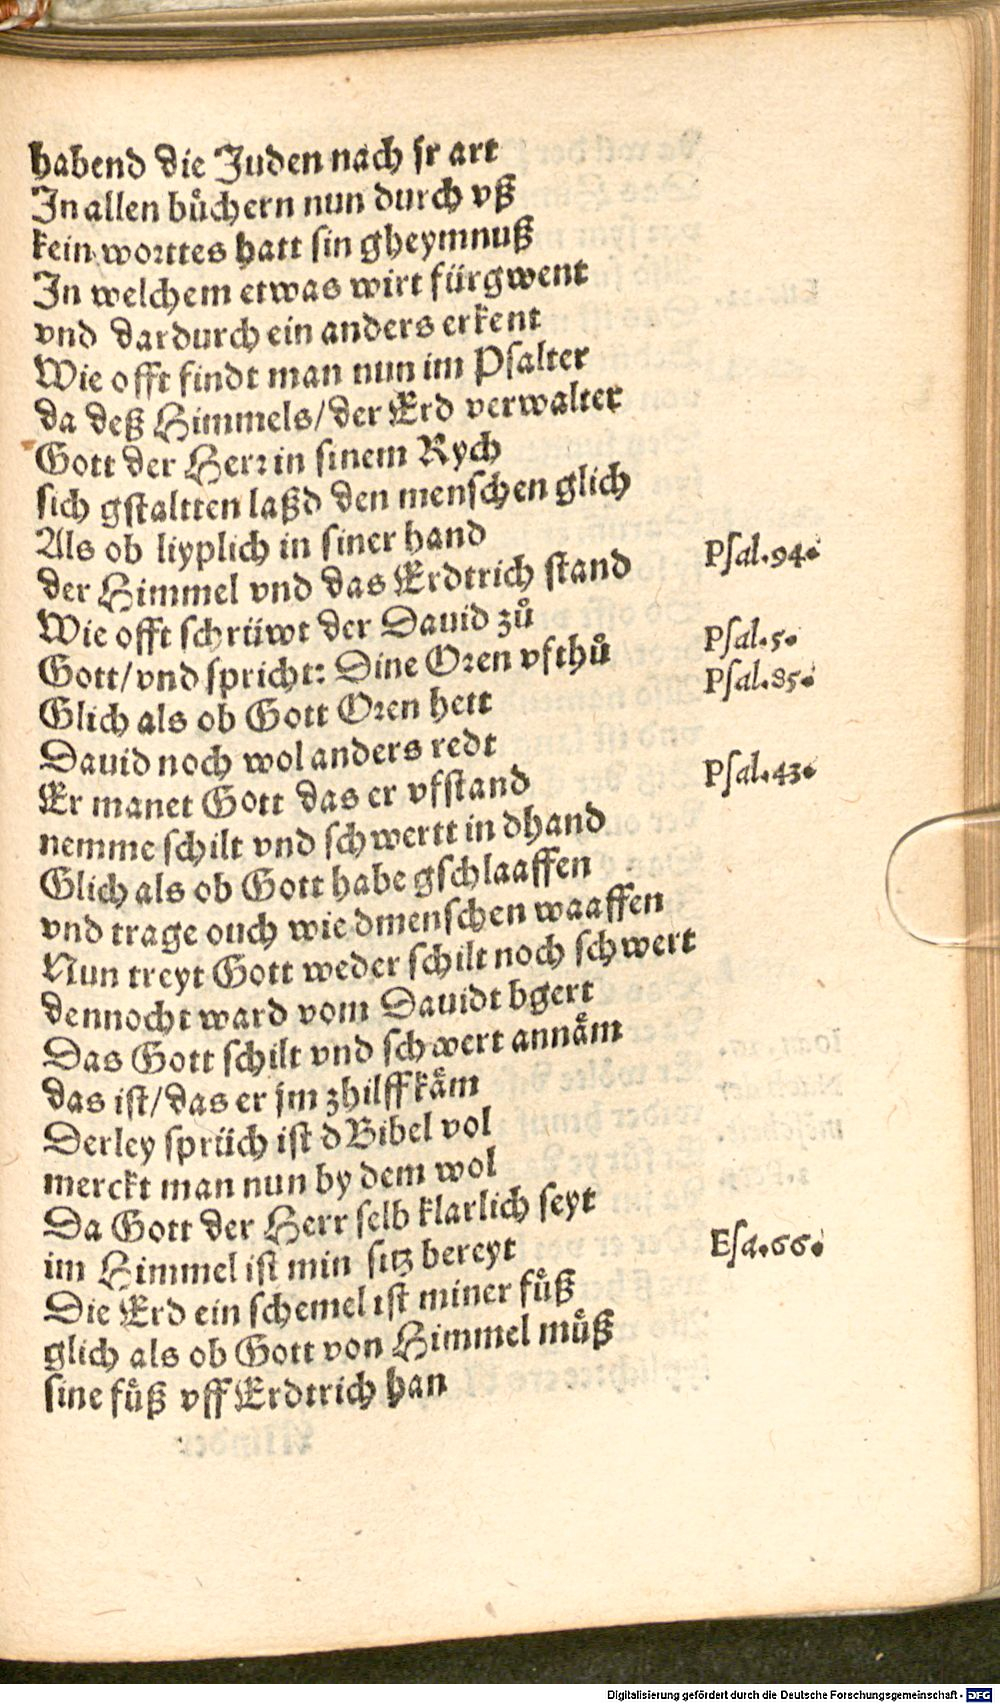 habend die Juden nach jr art
In allen buͤchern nun durch vß
kein worttes hatt sin gheymnuß
In welchem etwas wirt fürgwent
vnd dardurch ein anders erkent
Wie offt findt man nun im Psalter
da deß Himmels/der Erd verwalter
Gott der Herr in sinem Rych
sich gstaltten laßd den menschen glich
Als ob liyplich in siner hand
der Himmel vnd das Erdtrich stand Psal.94.
Wie offt schrüwt der Dauid zuͦ
Gott/vnd spricht: Dine Oren vfthuͦ Psal.5.
Glich als ob Gott Oren hett Psal.85.
Dauid noch wol anders redt
Er manet Gott das er vfstand Psal.43.
nemme schilt vnd schwertt in dhand
Glich als ob Gott habe gschlaaffen
vnd trage ouch wie dmenschen waaffen
Nun treyt Gott weder schilt noch schwert
dennocht ward vom Dauidt bgert
Das Gott schilt vnd schwert annaͤm
das ist/das er jm zhilff kaͤm
Derley sprüch ist d Bibel vol
merckt man nun by dem wol
Da Gott der Herr selb klarlich seyt
im Himmel ist min sitz bereyt Esa.66.
Die Erd ein schemel ist miner fuͤß
glich als ob Gott von Himmel muͤß
sine fuͤß vff Erdtrich han
Digitalisierung gefördert durch die Deutsche Forschungsgemeinschaft - DFG